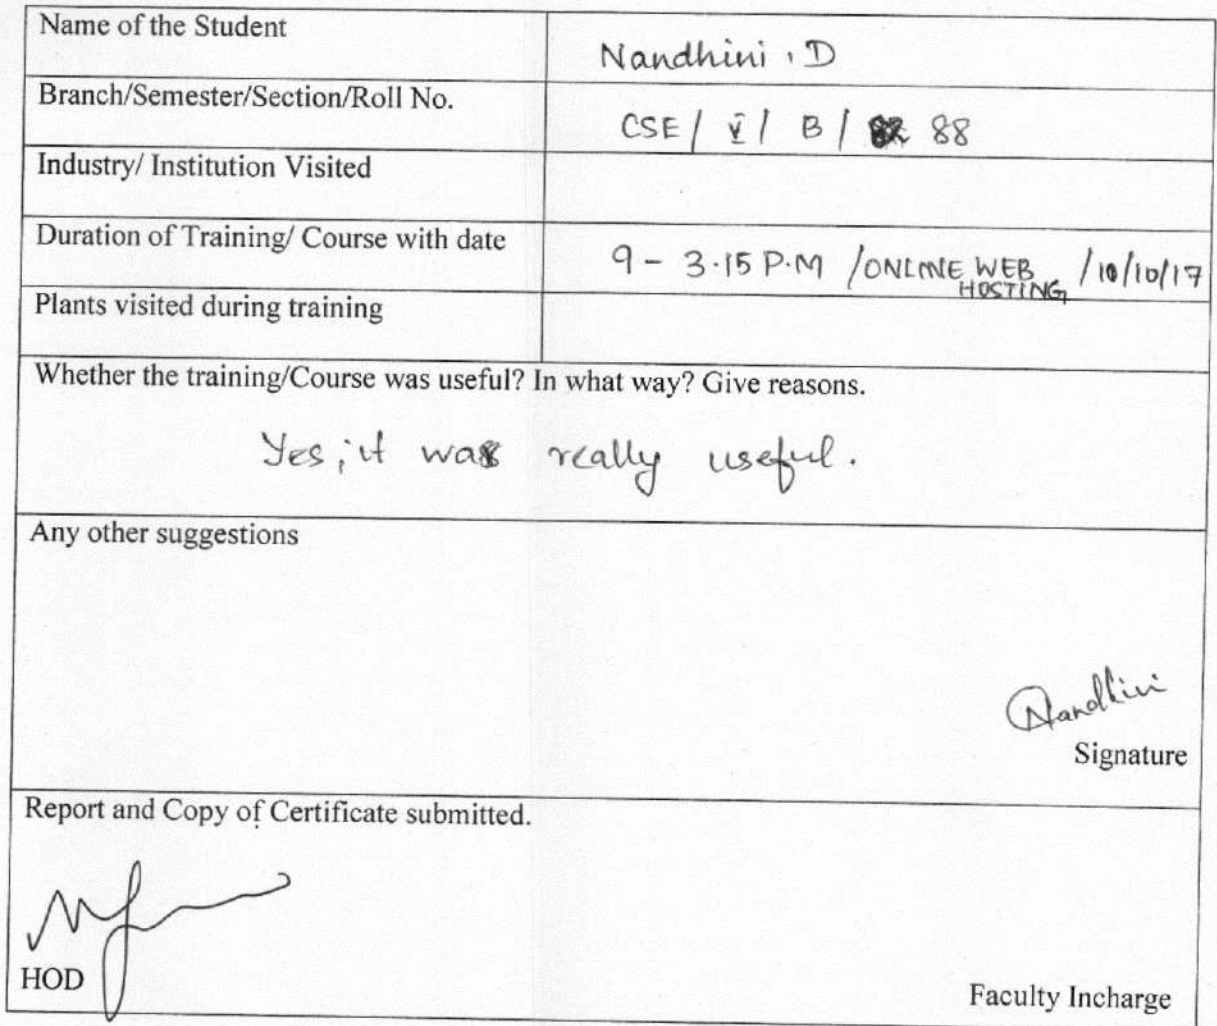 Name of the Student
Nandhini . D
Branch/Semester/Section/Roll No.
CSE / V / B / 88
Industry/ Institution Visited
Duration of Training/ Course with date
9 - 3.15 P.M /ONLINE WEB HOSTING /10/10/17
Plants visited during training
Whether the training/Course was useful? In what way? Give reasons.
Yes, it was really useful.
Any other suggestions
Nandhini
Signature
Report and Copy of Certificate submitted.
HOD
Faculty Incharge